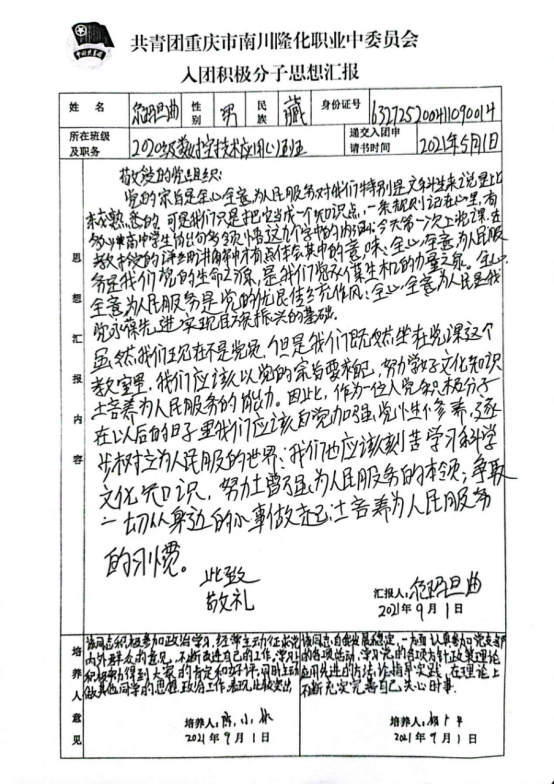 共青团重庆市南川隆化职业中委员会
入团积极分子思想汇报
姓名 尕玛旦曲 性别 男 民族 藏 身份证号 632725200411090014
所在班级及职务 2020级数控技术应用 班 递交入团申请书时间 2021年5月1日
思想汇报内容
敬爱的党组织:
党的宗旨是全心全意为人民服务对我们特别是文科生来说是比
较熟悉的 可是我们只是把它当成一个知识点,一条规则记在心里,有
教授的详细讲解中才有点体会其中的意味、全心全意为人民服
务是我们党的生命之源,是我们党不 生机的力量之泉。全心
全意为人民服务是党的优良传统作风、全心全意为人民是我
党永葆先进、实现民族振兴的基础.
虽然我们现在不是党员,但是我们既然坐在党课这个
教室里,我们应该以党的宗旨要求自己,努力学好文化知识
培养为人民服务的能力。因此,作为一位入党积极分子
在以后的日子里我们应该自觉加强党性修养,逐
步树立为人民服的世界;我们也应该刻苦学习科学
文化知识,努力增强为人民服务的本领;争取
一切从身边的小事做起培养为人民服务
的习惯。
此致
敬礼
汇报人:尕玛旦曲
2021年9月1日
培养人意见
该同志积极参加政治学习,经常主动征求党
内外群众的意见,不断改进自己的工作,学习上
积极努力得到大家的肯定和好评,同时主动
做其他同学的思想政治工作,表现比较突出
培养人:
2021年9月1日
该同志自我发展稳定,一方面认真参加党支部
的各项活动,学习党的各项方针政策理论
应用先进的方法论指导实践,在理论上
不断充实完善自己,关心时事.
培养人:
2021年9月1日